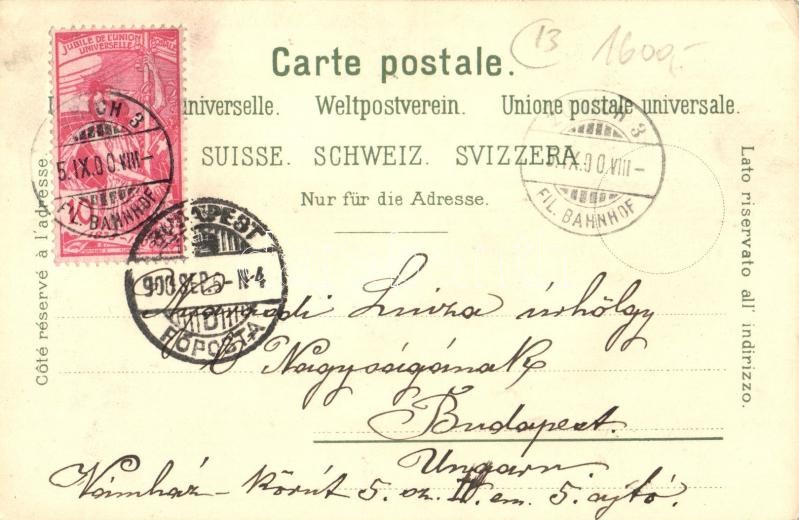 13 1600,-
JUBILÉ DE L'UNION POSTALE
UNIVERSELLE
10
Carte postale.
universelle. Weltpostverein. Unione postale universale.
SUISSE. SCHWEIZ. SVIZZERA
Nur für die Adresse.
Côté réservé à l'adresse.
Lato riservato all' indirizzo.
CH 3
5.IX.00.VIII-
FIL. BAHNHOF
H 3
5.IX.00.VIII-
FIL. BAHNHOF
BUDAPEST
900 SEP. 6-N4
D
FŐPOSTA
Luiza úrhölgy
Nagyságának
Budapest.
Ungarn
Vámház-körút 5. sz. II. em. 5. ajtó.